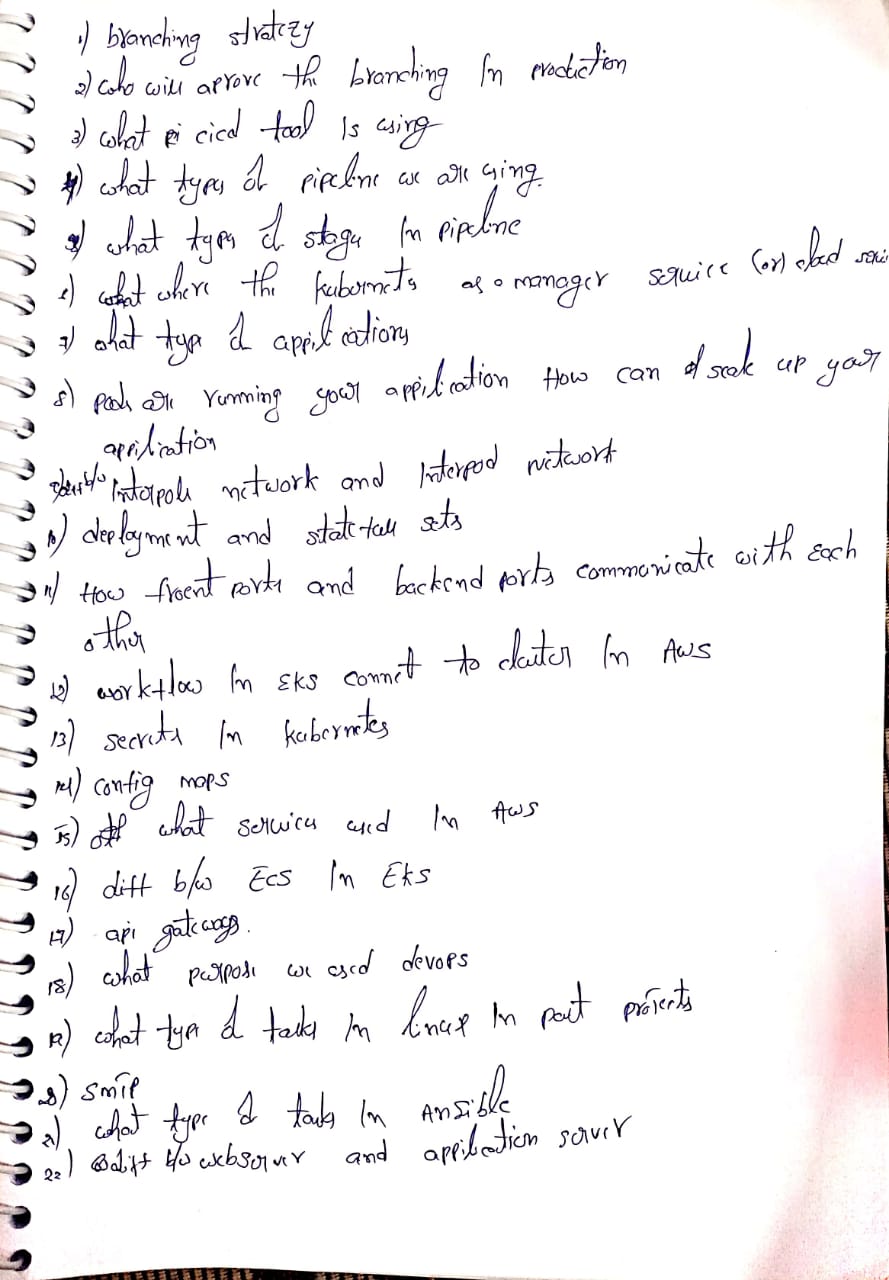 1) branching stratezy
2) who will aprove the branching In production
3) what cicd tool Is using
4) what types of pipeline we are using.
5) what types of stage In pipeline
6) where the kubernets as a manager service (or) cloud
7) what type of applications
8) pods are running your application How can up your
application
diff b/w network and Interpod network
10) deployment and sets
11) How ports and backend ports communicate with each
other
12) workflow In EKS connet to cluster In AWS
13) secrets In kubernetes
14) config maps
15) what services used In AWS
16) diff b/w ECS In EKS
17) api gateways.
18) what purpose we used devops
19) what type of tasks In linux In past projects
20) SMTP
21) what type of tasks In Ansible
22) diff b/w webserver and application server